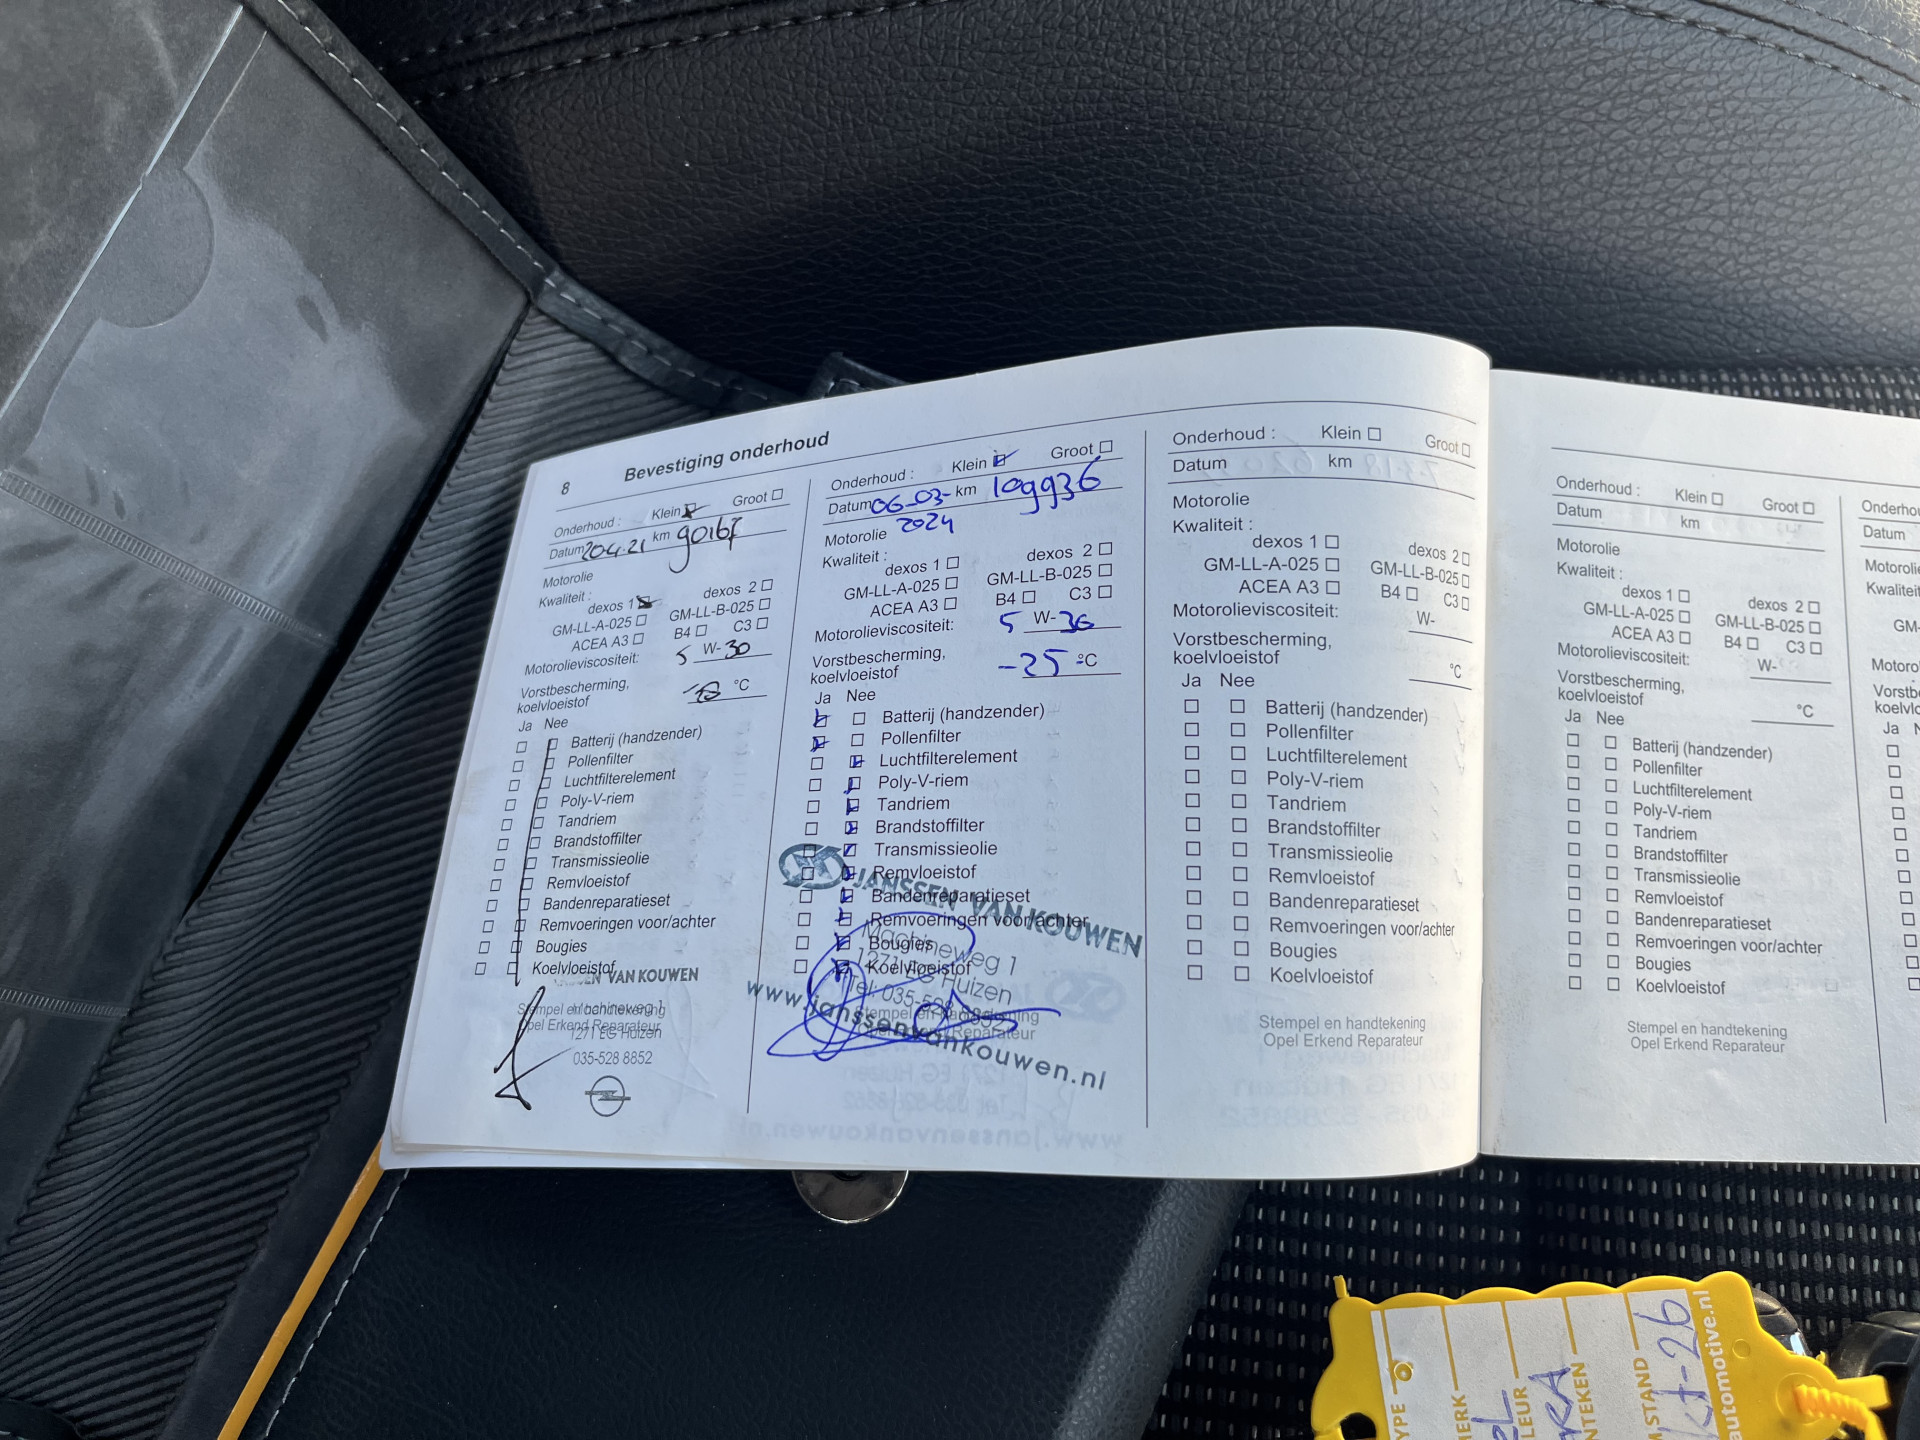 8 Bevestiging onderhoud
Onderhoud : Klein Groot
Datum 204.21 km 90167
Motorolie
Kwaliteit :
dexos 1 dexos 2
GM-LL-A-025 GM-LL-B-025
ACEA A3 B4 C3
Motorolieviscositeit: 5 W-30
Vorstbescherming,
koelvloeistof °C
Ja Nee
Batterij (handzender)
Pollenfilter
Luchtfilterelement
Poly-V-riem
Tandriem
Brandstoffilter
Transmissieolie
Remvloeistof
Bandenreparatieset
Remvoeringen voor/achter
Bougies
Koelvloeistof
VAN KOUWEN
Stempel en handtekening
Opel Erkend Reparateur
Machineweg 1
1271 EG Huizen
035-528 8852
Onderhoud : Klein Groot
Datum 06-03- km 109936
2024
Motorolie
Kwaliteit :
dexos 1 dexos 2
GM-LL-A-025 GM-LL-B-025
ACEA A3 B4 C3
Motorolieviscositeit: 5 W-30
Vorstbescherming,
koelvloeistof -25 °C
Ja Nee
Batterij (handzender)
Pollenfilter
Luchtfilterelement
Poly-V-riem
Tandriem
Brandstoffilter
Transmissieolie
Remvloeistof
Bandenreparatieset
Remvoeringen voor/achter
Bougies
Koelvloeistof
JANSSEN VAN KOUWEN
Machineweg 1
1271 EG Huizen
Tel: 035-5288852
www.janssenvankouwen.nl
Stempel en handtekening
Opel Erkend Reparateur
Onderhoud : Klein Groot
Datum km
Motorolie
Kwaliteit :
dexos 1 dexos 2
GM-LL-A-025 GM-LL-B-025
ACEA A3 B4 C3
Motorolieviscositeit: W-
Vorstbescherming,
koelvloeistof °C
Ja Nee
Batterij (handzender)
Pollenfilter
Luchtfilterelement
Poly-V-riem
Tandriem
Brandstoffilter
Transmissieolie
Remvloeistof
Bandenreparatieset
Remvoeringen voor/achter
Bougies
Koelvloeistof
Stempel en handtekening
Opel Erkend Reparateur
Onderhoud : Klein Groot
Datum km
Motorolie
Kwaliteit :
dexos 1 dexos 2
GM-LL-A-025 GM-LL-B-025
ACEA A3 B4 C3
Motorolieviscositeit: W-
Vorstbescherming,
koelvloeistof °C
Ja Nee
Batterij (handzender)
Pollenfilter
Luchtfilterelement
Poly-V-riem
Tandriem
Brandstoffilter
Transmissieolie
Remvloeistof
Bandenreparatieset
Remvoeringen voor/achter
Bougies
Koelvloeistof
Stempel en handtekening
Opel Erkend Reparateur
Datum
Ja
automotive.nl